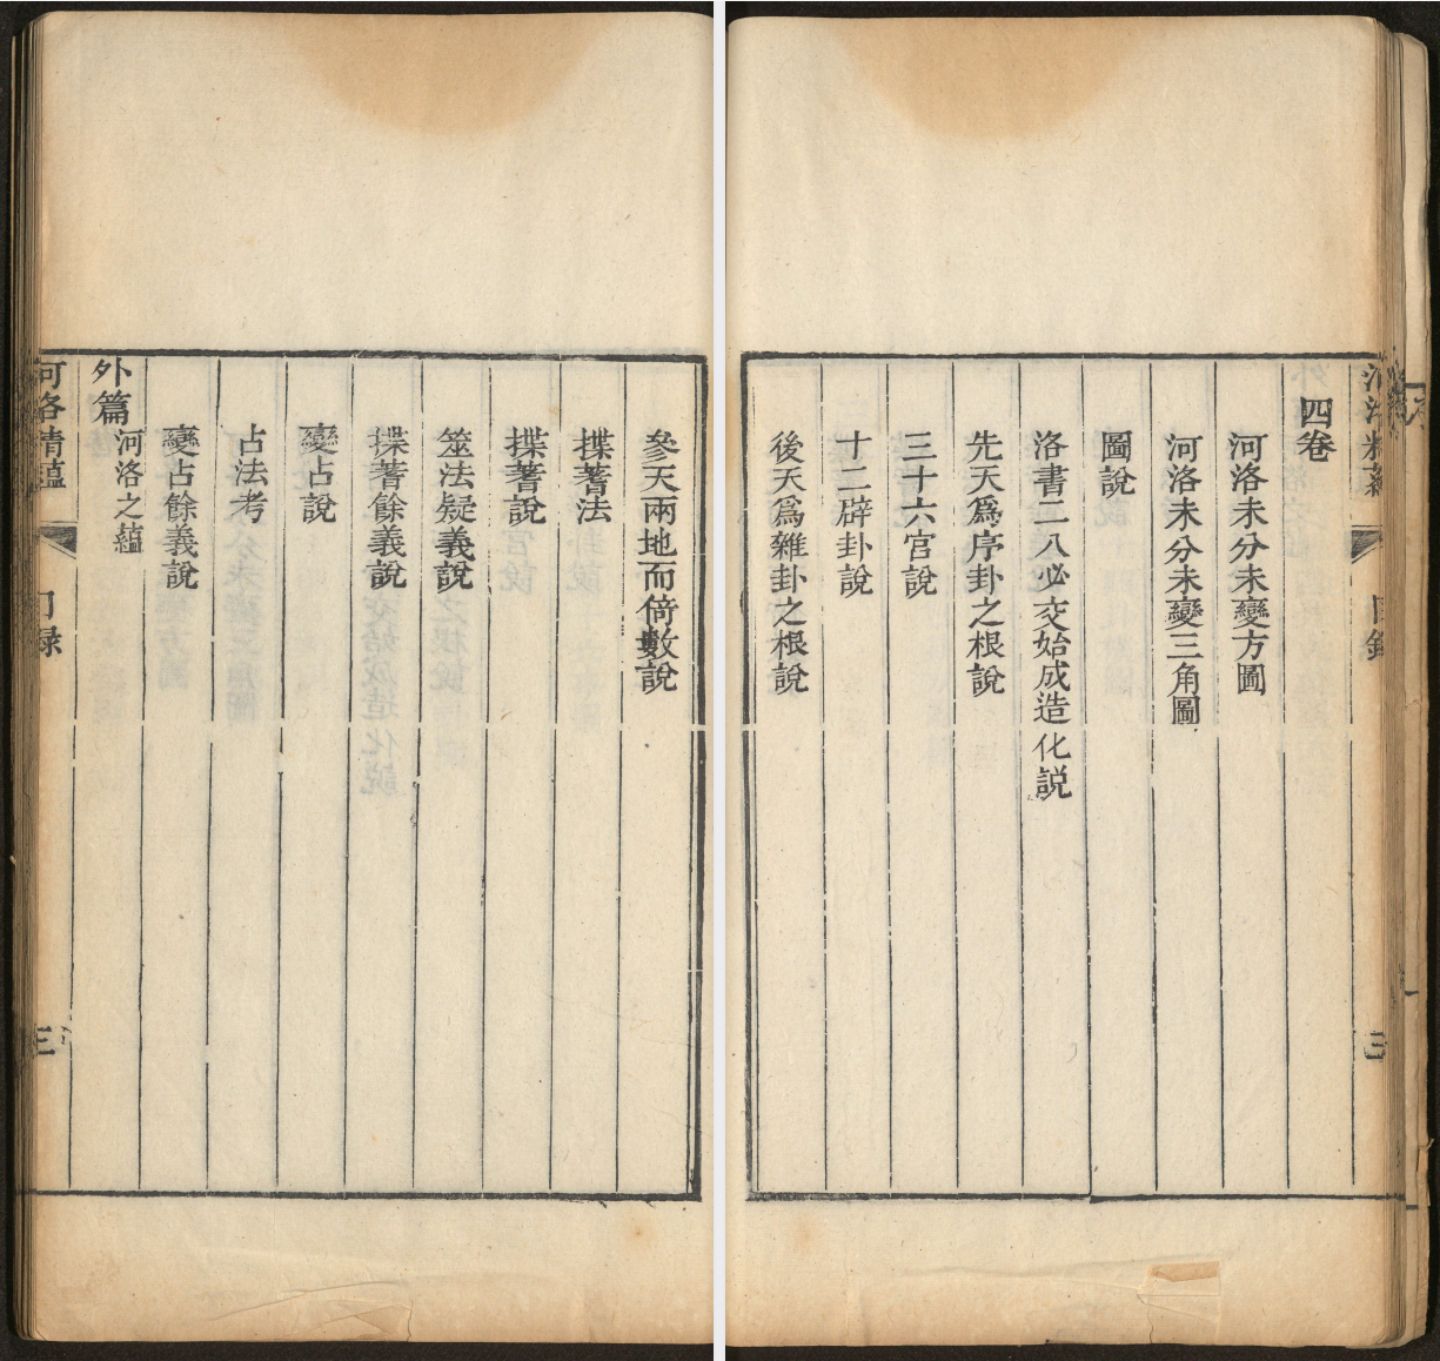 參天兩地而倚數說
揲蓍法
揲蓍說
筮法疑義說
揲蓍餘義說
變占說
占法考
變占餘義說
外篇 河洛之蘊
河洛精蘊 目録 三
河洛精蘊 目録 三
四卷
河洛未分未變方圖
河洛未分未變三角圖
圖說
洛書二八必交始成造化説
先天爲序卦之根說
三十六宮說
十二辟卦說
後天爲雜卦之根說